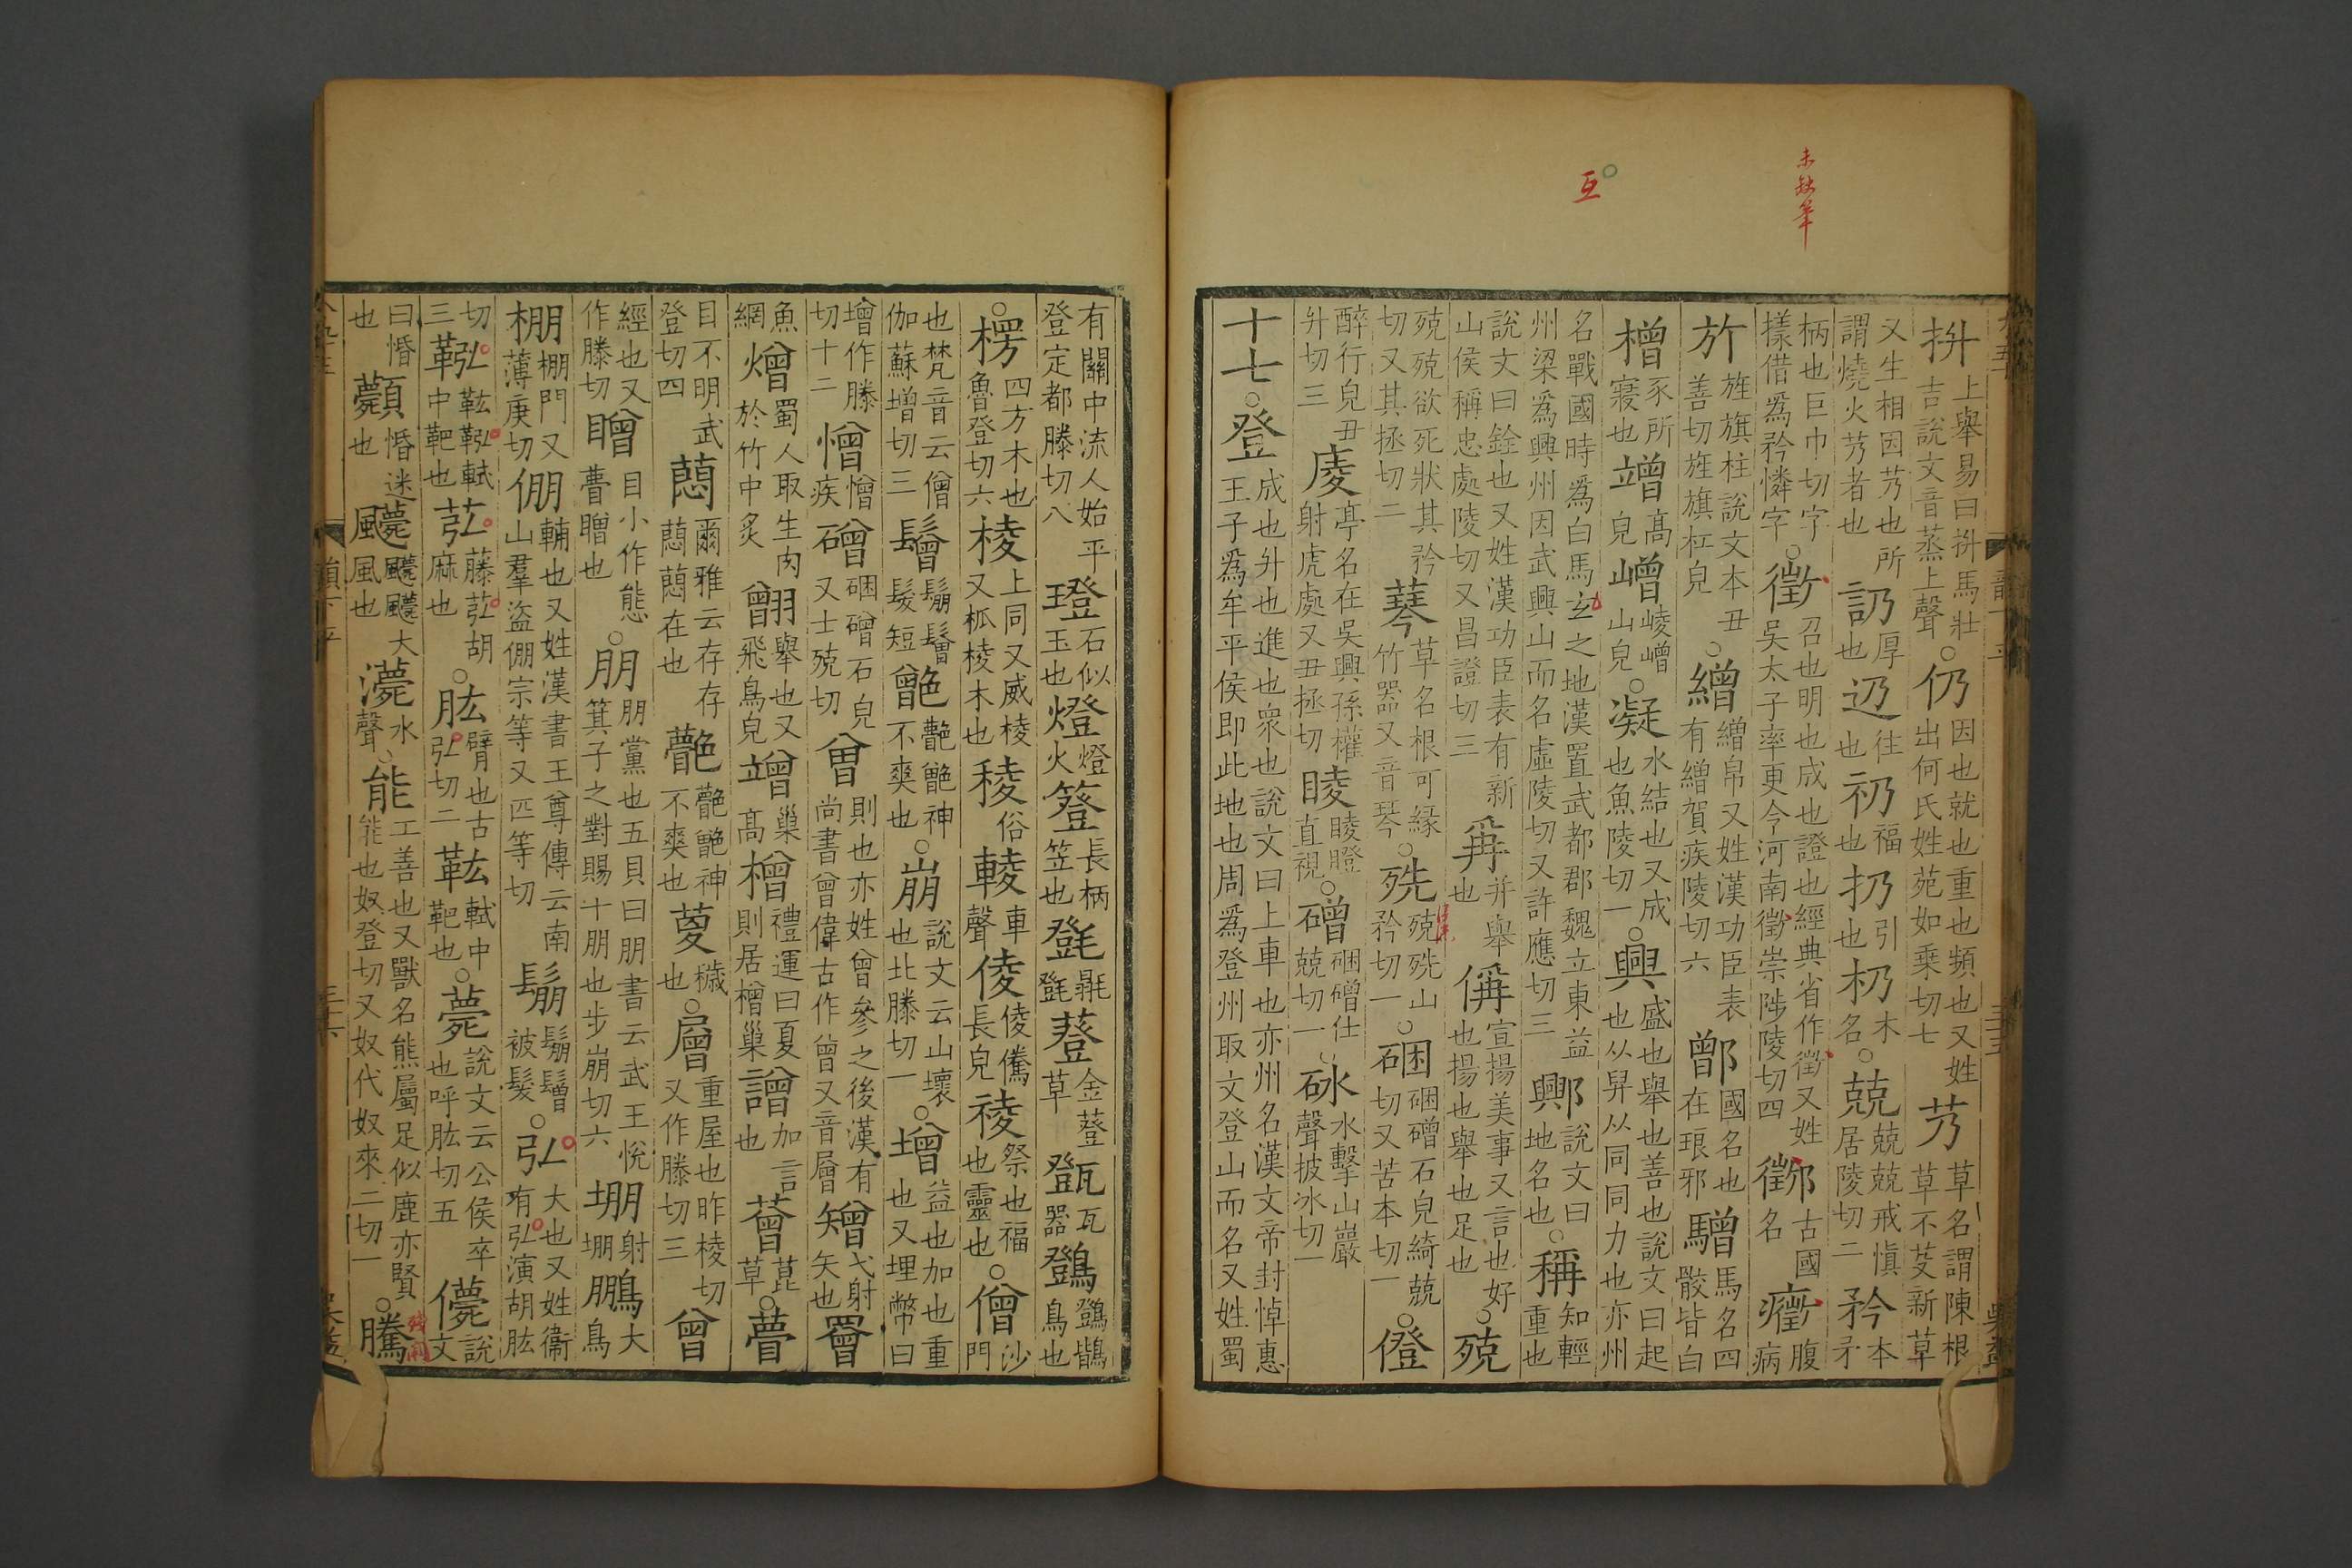 未缺筆
互
抍上舉易曰抍馬壯吉說文音蒸上聲○仍因也就也重也頻也又姓出何氏姓苑如乗切七芿草名謂陳根草不芟新草
又生相因芿也所謂燒火芿者也訒厚也辸往也礽福也扔引也杒木名○兢兢兢戒愼居陵切二矜本矛
柄也巨巾切字㨾借爲矜憐字○徵召也明也成也證也經典省作徵又姓吳太子率更今河南徵崇陟陵切四𨞪古國名癥腹病
㫃旌旗柱說文本丑善切旌旗杠皃○繒繒帛又姓漢功臣表有繒賀疾陵切六鄫國名也在琅邪驓馬名四骹皆白
橧豕所寢也竲高皃嶒崚嶒山皃○凝水結也又成也魚陵切一○興盛也舉也善也說文曰起也从舁从同同力也亦州
名戰國時爲白馬玄之地漢置武都郡魏立東益州梁爲興州因武興山而名虛陵切又許應切三鄋說文曰地名也○稱知輕重也
說文曰銓也又姓漢功臣表有新山侯稱忠處陵切又昌證切三爯并舉也偁宣揚美事又言也好也揚也舉也足也○殑
殑殑欲死狀其矜切又其拯切二䔖草名根可緣竹器又音琴○殅殑殅山矜切一○硱硱磳石皃綺兢切又苦本切一○僜
醉行皃丑升切三庱亭名在吳興孫權射虎處又丑拯切睖睖瞪直視○磳硱磳仕兢切一○砯水擊山巖聲披冰切一
十七○登成也升也進也衆也說文曰上車也亦州名漢文帝封悼惠王子爲牟平侯即此地也周爲登州取文登山而名又姓蜀
有關中流人始平登定都滕切八璒石似玉也燈燈火簦長柄笠也㲪㲪䔲金䔲草䙞瓦器鷑鷑鵲鳥也
○楞四方木也魯登切六棱上同又威棱又柧棱木也稜俗輘車聲倰倰儯長皃祾祭也福也靈也○僧沙門
也梵音云僧伽蘇增切三鬙鬅鬙髮短䒏䒏神不爽也○崩說文云山壞也北滕切一○增益也加也重也又埋幣曰
增作滕切十二憎憎疾磳硱磳石皃又士殑切曾則也亦姓曾參之後漢有尚書曾偉古作曾又音層矰弋射矢也罾
魚網熷蜀人取生肉於竹中炙䎖舉也又飛鳥皃竲巢高橧禮運曰夏則居橧巢譄加言也䉕莀草○瞢
目不明武登切四萠爾雅云存存萠萠在也䒐䒐䒏神不爽也䔎穢也○層重屋也昨棱切又作滕切三曾
經也又作滕切䁬目小作態瞢䁬也○朋朋黨也五貝曰朋書云武王悅箕子之對賜十朋也步崩切六堋射堋鵬大鳥
棚棚門又薄庚切倗輔也又姓漢書王尊傳云南山羣盜倗宗等又匹等切鬅鬅鬙被髮○弘大也又姓衞有弘演胡肱
切三鞃䡌鞃軾中靶也苰藤苰胡麻也○肱臂也古弘切二䡌軾中靶也○薨說文云公侯卒也呼肱切五儚說文
曰惛也顭惛迷也䫻䫻䫻大風風也㵗水聲○能工善也又獸名熊屬足似鹿亦賢能也奴登切又奴代奴來二切一○騰